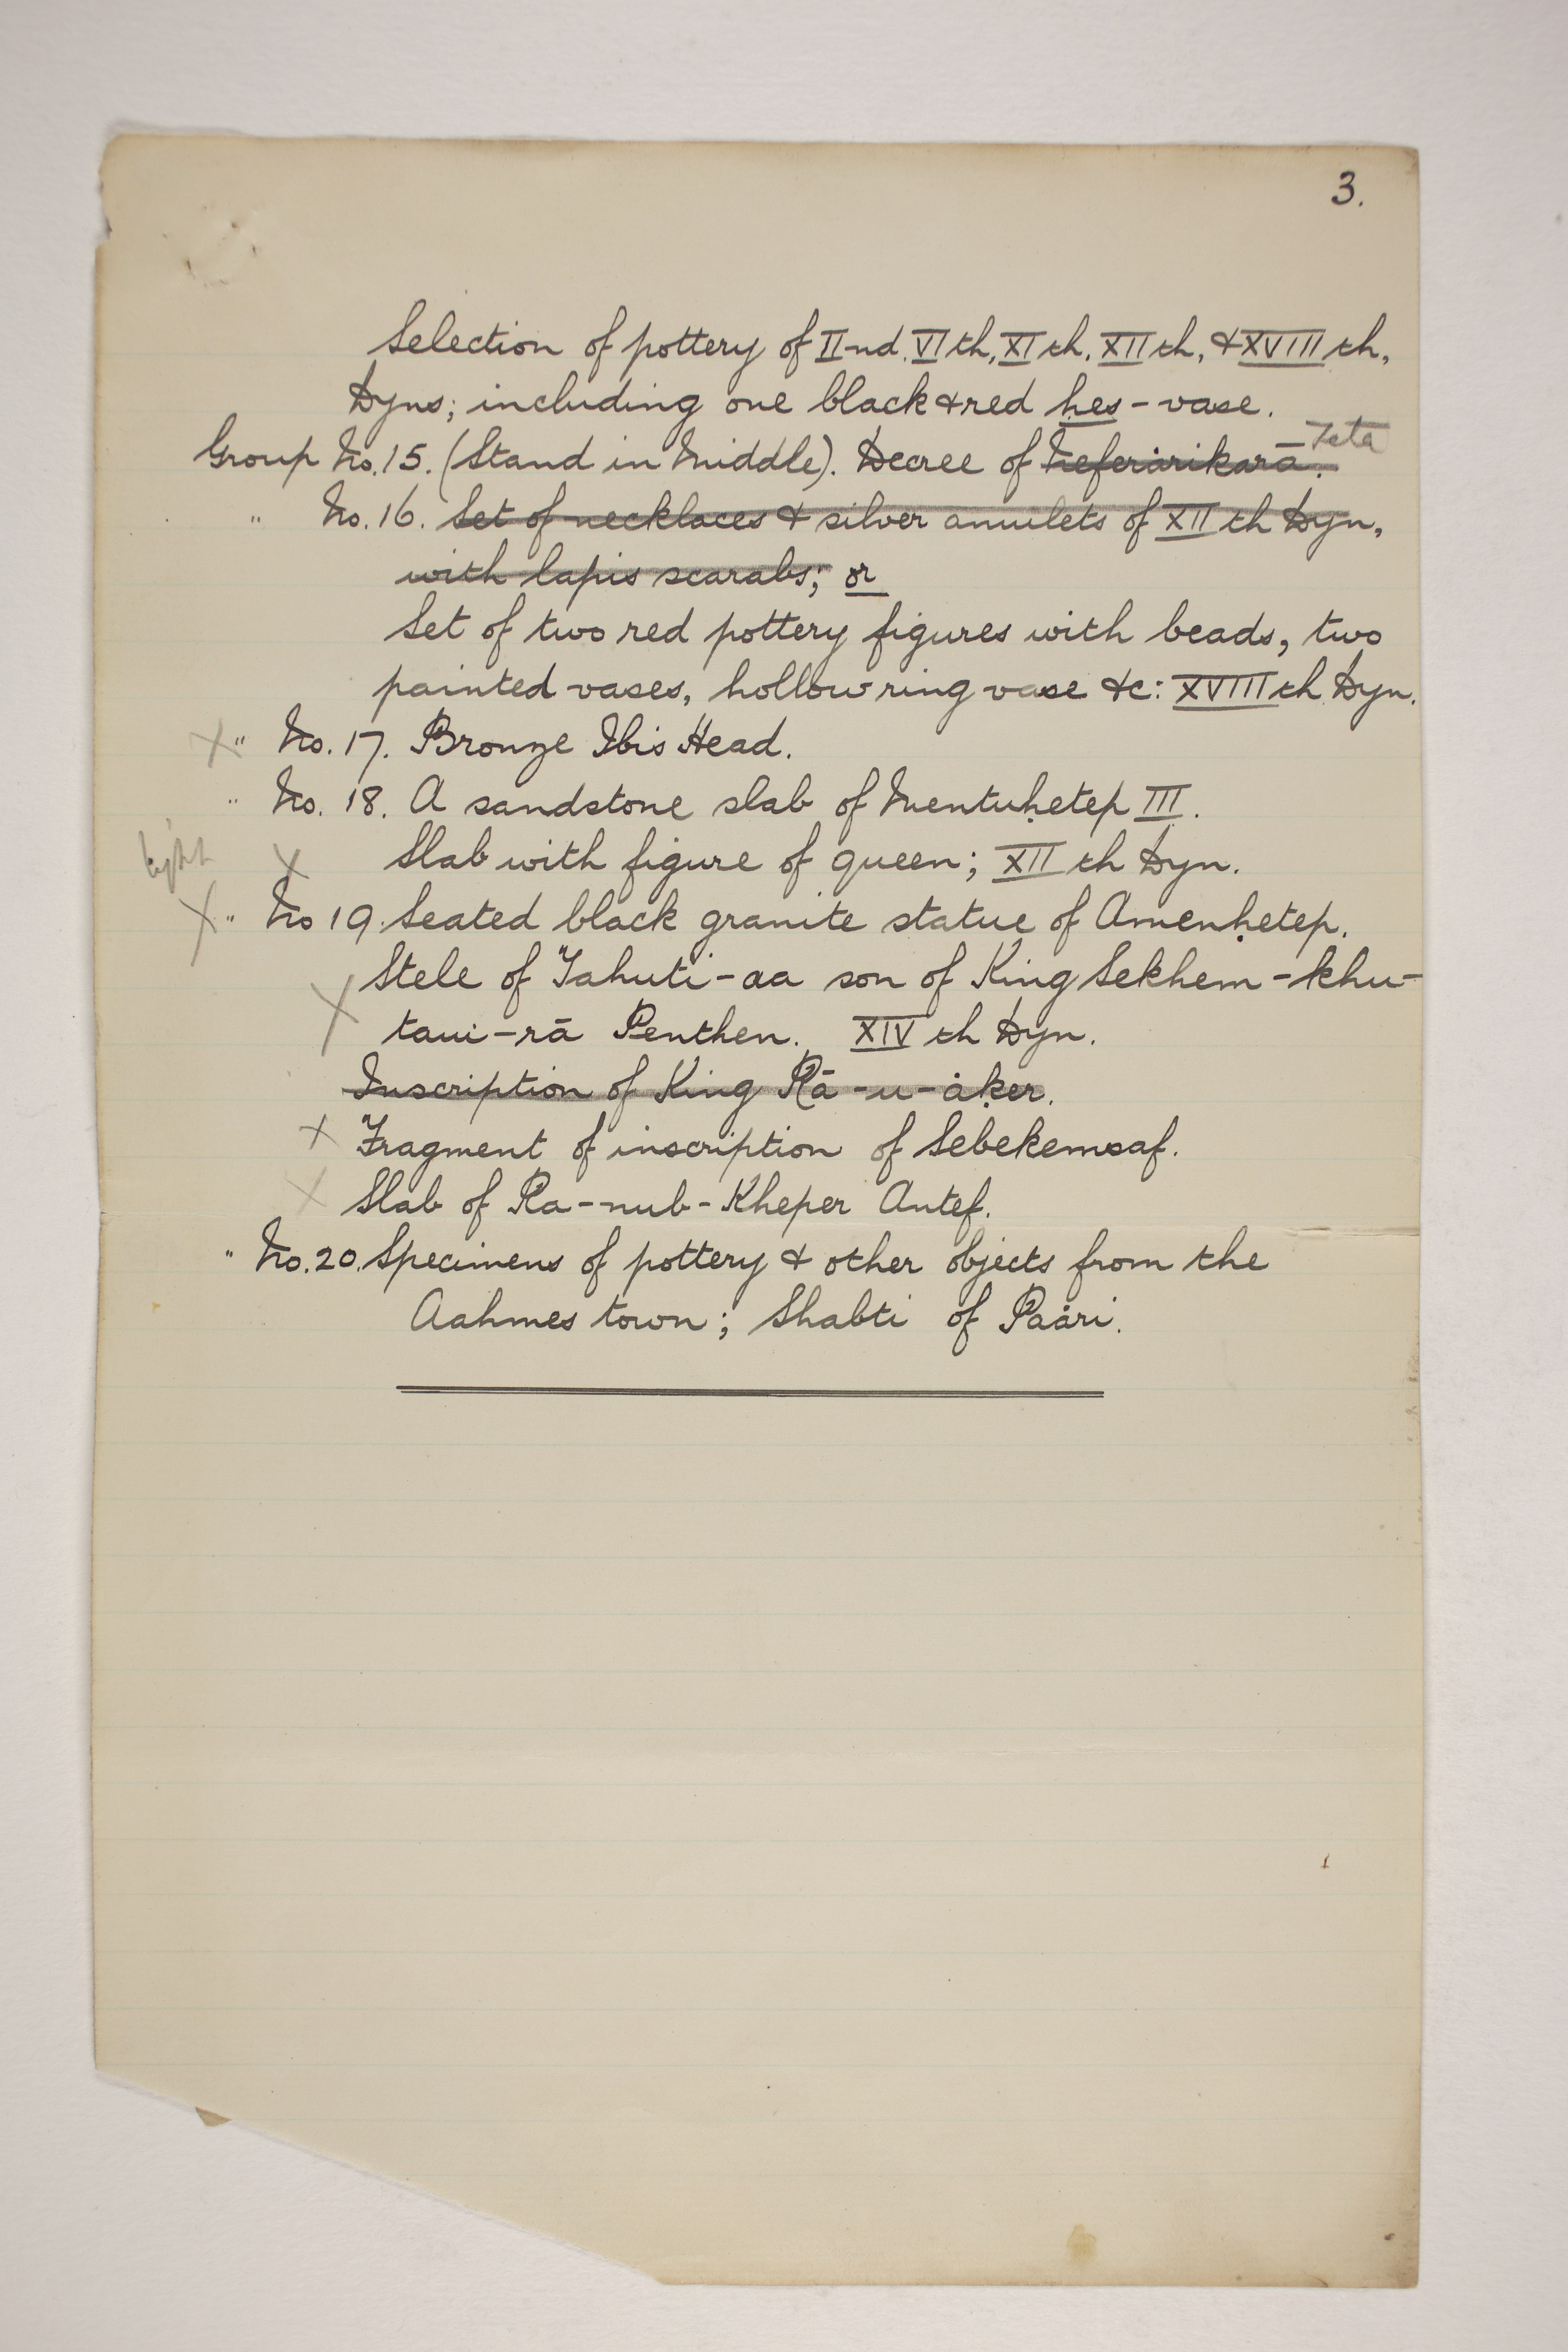 3.
Selection of pottery of IInd. VIth, XIth, XIIth, & XVIIIth,
Dyns; including one black & red hes-vase.
Group No. 15. (Stand in Middle). Decree of Neferȧrikarā. Teta
" No. 16. Set of necklaces & silver amulets of XIIth Dyn,
with lapis scarabs; or
Set of two red pottery figures with beads, two
painted vases, hollow ring vase &c: XVIIIth Dyn.
X " No. 17. Bronze Ibis Head.
" No. 18. A sandstone slab of Mentuḥetep III.
X Slab with figure of queen; XIIth Dyn.
X " No 19. Seated black granite statue of Amenḥetep.
X Stele of Tahuti-aa son of King Sekhem-khu-
taui-rā Penthen. XIVth Dyn.
Inscription of King Rā-u-ȧḳer.
X Fragment of inscription of Sebekemsaf.
X Slab of Ra-nub-Kheper Antef.
" No. 20. Specimens of pottery & other objects from the
Aahmes town; Shabti of Paȧri.